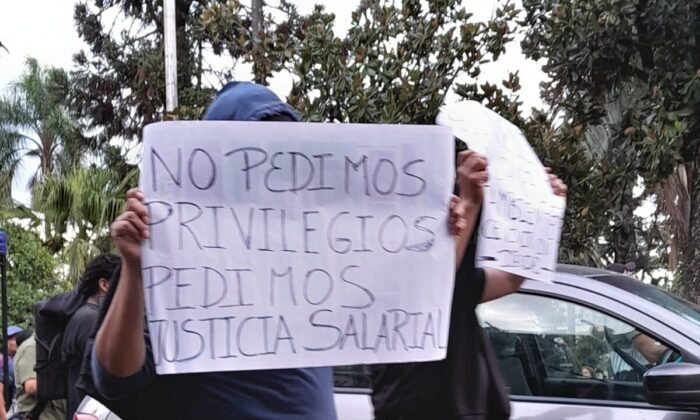 NO PEDIMOS
PRIVILEGIOS
PEDIMOS
JUSTICIA SALARIAL